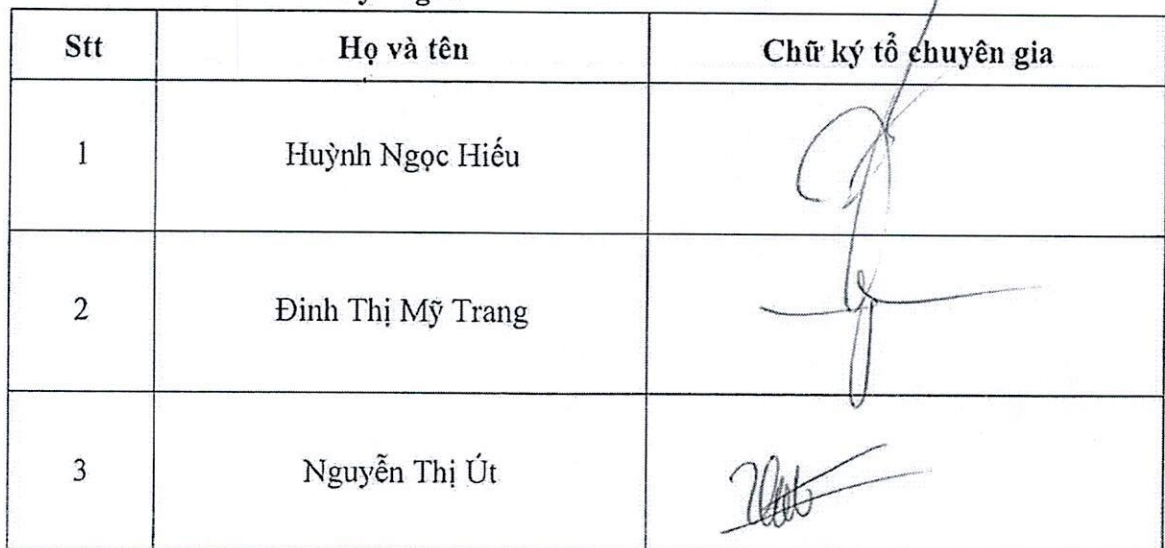 Stt Họ và tên Chữ ký tổ chuyên gia
1 Huỳnh Ngọc Hiếu
2 Đinh Thị Mỹ Trang
3 Nguyễn Thị Út